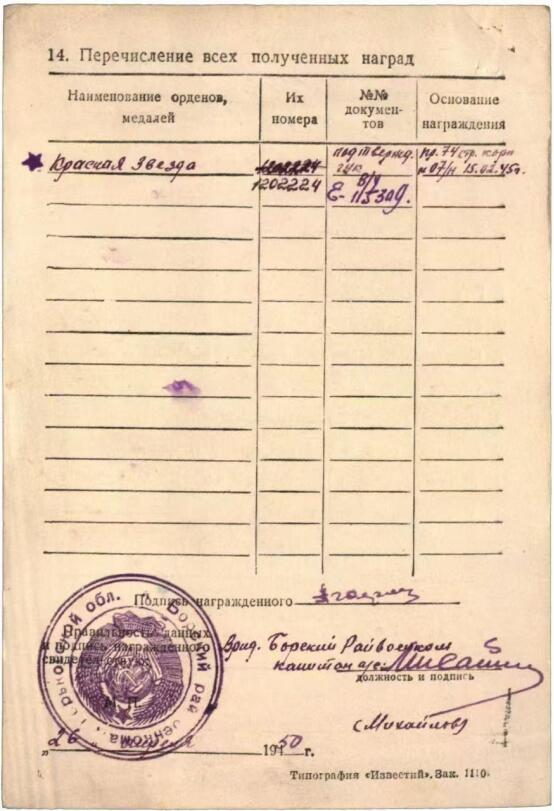 14. Перечисление всех полученных наград
Наименование орденов, медалей
Их номера
№№ документов
Основание награждения
Красная Звезда
1202224
1202224
подтвержд.
ГУК
В/У
пр. 74 стр. корп
№ 07/н 15.02.45г.
Подпись награжденного
Правильность данных
и подпись награжденного
свидетельствую:
Врид. Борский Райвоенком
капитан а/с
должность и подпись
М. П.
(Михайлов)
„26 апреля 1950 г.
Типография «Известий». Зак. 1110.